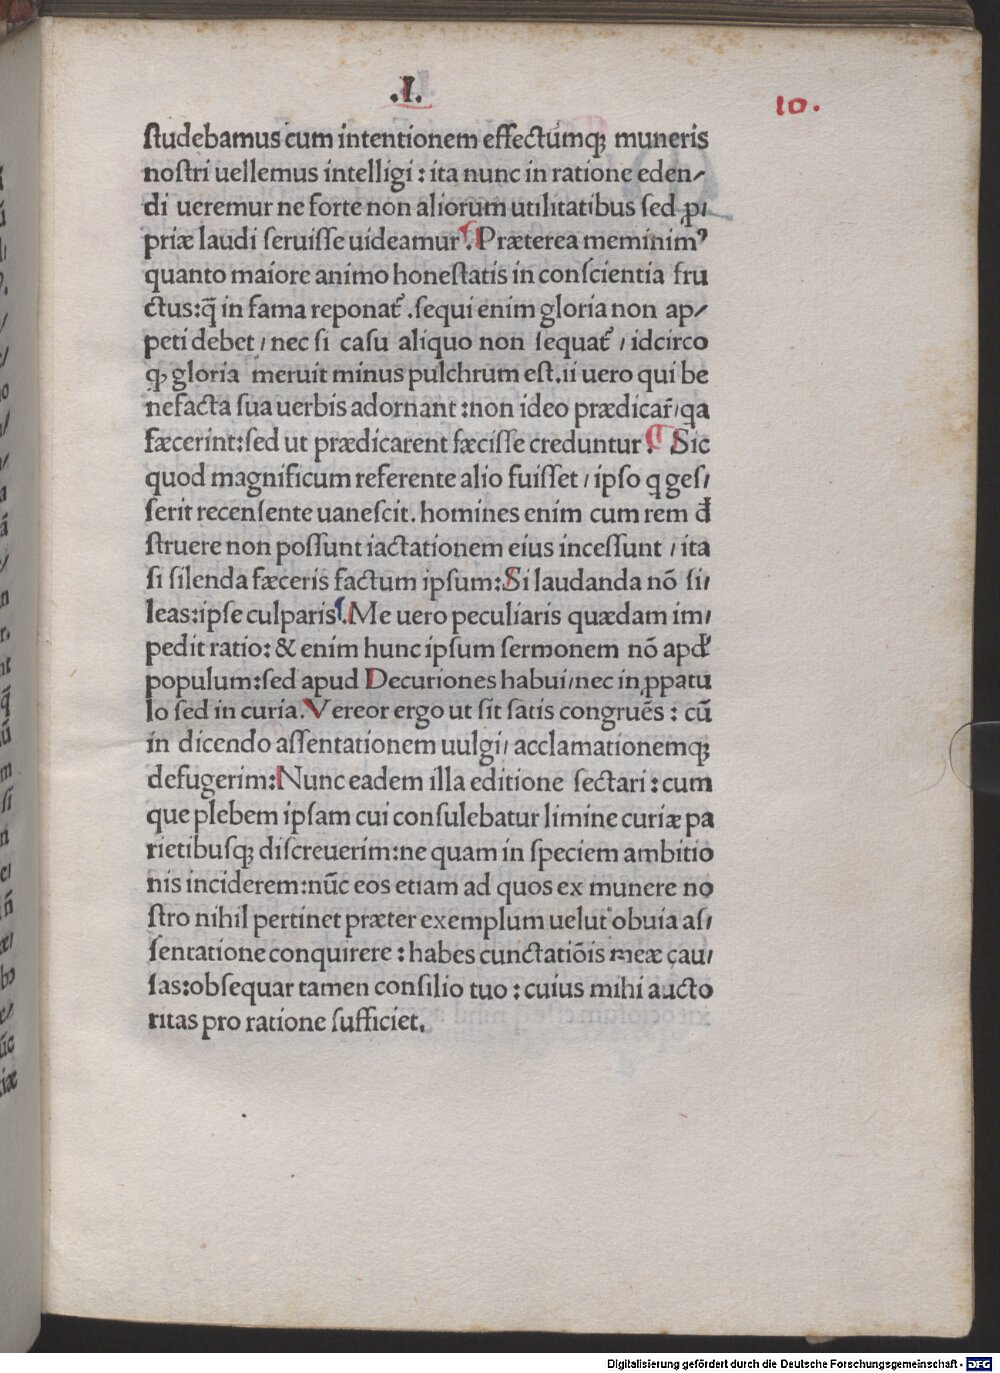 .I.
10.
ſtudebamus cum intentionem effectumqꝫ muneris
noſtri uellemus intelligi : ita nunc in ratione eden⸗
di ueremur ne forte non aliorum utilitatibus ſed ꝓ⸗
priæ laudi ſeruiſſe uideamur. Præterea meminimꝰ
quanto maiore animo honeſtatis in conſcientia fru
ctus:q̄ in fama reponat᷑ .ſequi enim gloria non ap⸗
peti debet / nec ſi caſu aliquo non ſequat᷑ / idcirco
qꝫ gloria meruit minus pulchrum eſt. ii uero qui be
nefacta ſua uerbis adornant :non ideo prædicar̄/qa
fæcerint:ſed ut prædicarent fæciſſe creduntur. Sic
quod magnificum referente alio fuiſſet / ipſo q geſ/
ſerit recenſente uaneſcit. homines enim cum rem đ
ſtruere non poſſunt iactationem eius inceſſunt / ita
ſi ſilenda fæceris factum ipſum:Si laudanda nō ſi/
leas:ipſe culparis. Me uero peculiaris quædam im/
pedit ratio: & enim hunc ipſum ſermonem nō apđ
populum:ſed apud Decuriones habui/nec in ꝓpatu
lo ſed in curia. Vereor ergo ut ſit ſatis congruēs : cū
in dicendo aſſentationem uulgi/ acclamationemqꝫ
defugerim:Nunc eadem illa editione ſectari : cum
que plebem ipſam cui conſulebatur limine curiæ pa
rietibuſqꝫ diſcreuerim:ne quam in ſpeciem ambitio
nis inciderem:nūc eos etiam ad quos ex munere no
ſtro nihil pertinet præter exemplum uelut obuia aſ/
ſentatione conquirere : habes cunctatiōis meæ cau/
ſas:obſequar tamen conſilio tuo : cuius mihi aucto
ritas pro ratione ſufficiet.
Digitalisierung gefördert durch die Deutsche Forschungsgemeinschaft - DFG